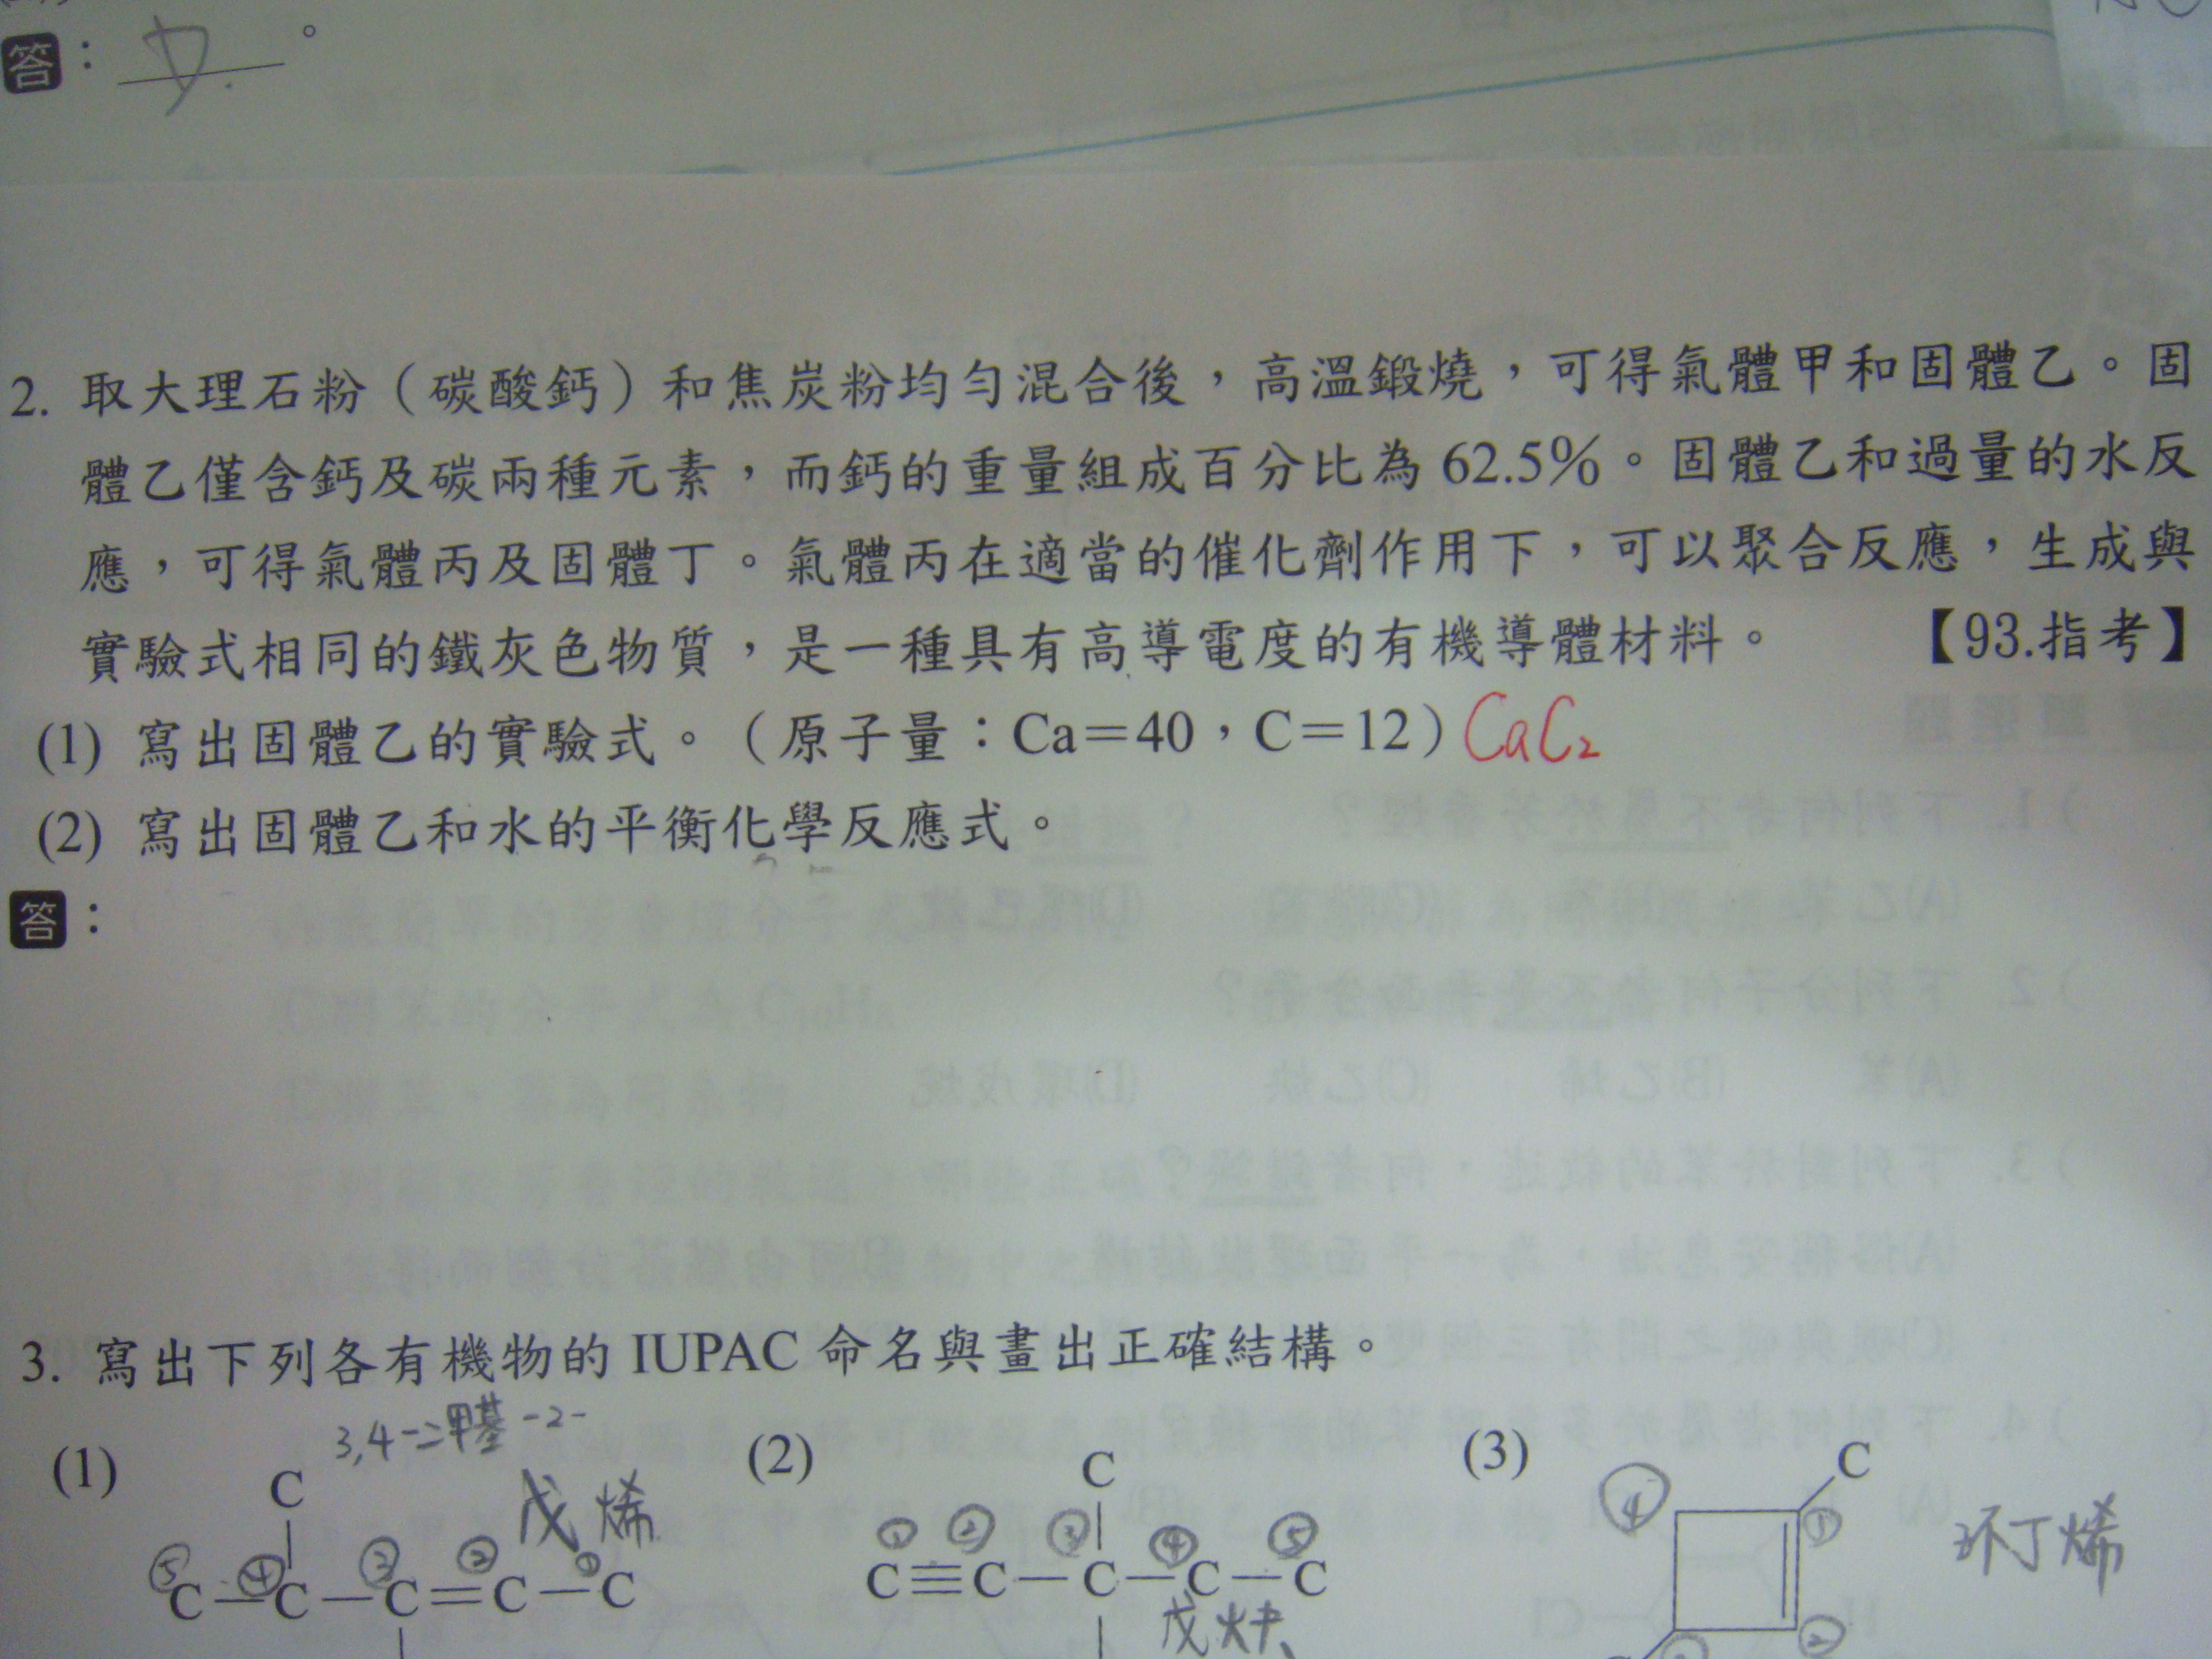 答：
2. 取大理石粉（碳酸鈣）和焦炭粉均勻混合後，高溫鍛燒，可得氣體甲和固體乙。固
體乙僅含鈣及碳兩種元素，而鈣的重量組成百分比為 62.5%。固體乙和過量的水反
應，可得氣體丙及固體丁。氣體丙在適當的催化劑作用下，可以聚合反應，生成與
實驗式相同的鐵灰色物質，是一種具有高導電度的有機導體材料。 【93.指考】
(1) 寫出固體乙的實驗式。（原子量：Ca＝40，C＝12）CaC₂
(2) 寫出固體乙和水的平衡化學反應式。
答：
3. 寫出下列各有機物的 IUPAC 命名與畫出正確結構。
(1) 3,4-二甲基-2-
戊烯
C
⑤ ④ ③ ② ①
C－C－C＝C－C
(2)
C
① ② ③ ④ ⑤
C≡C－C－C－C
戊炔
(3)
C
④ ①
环丁烯
②